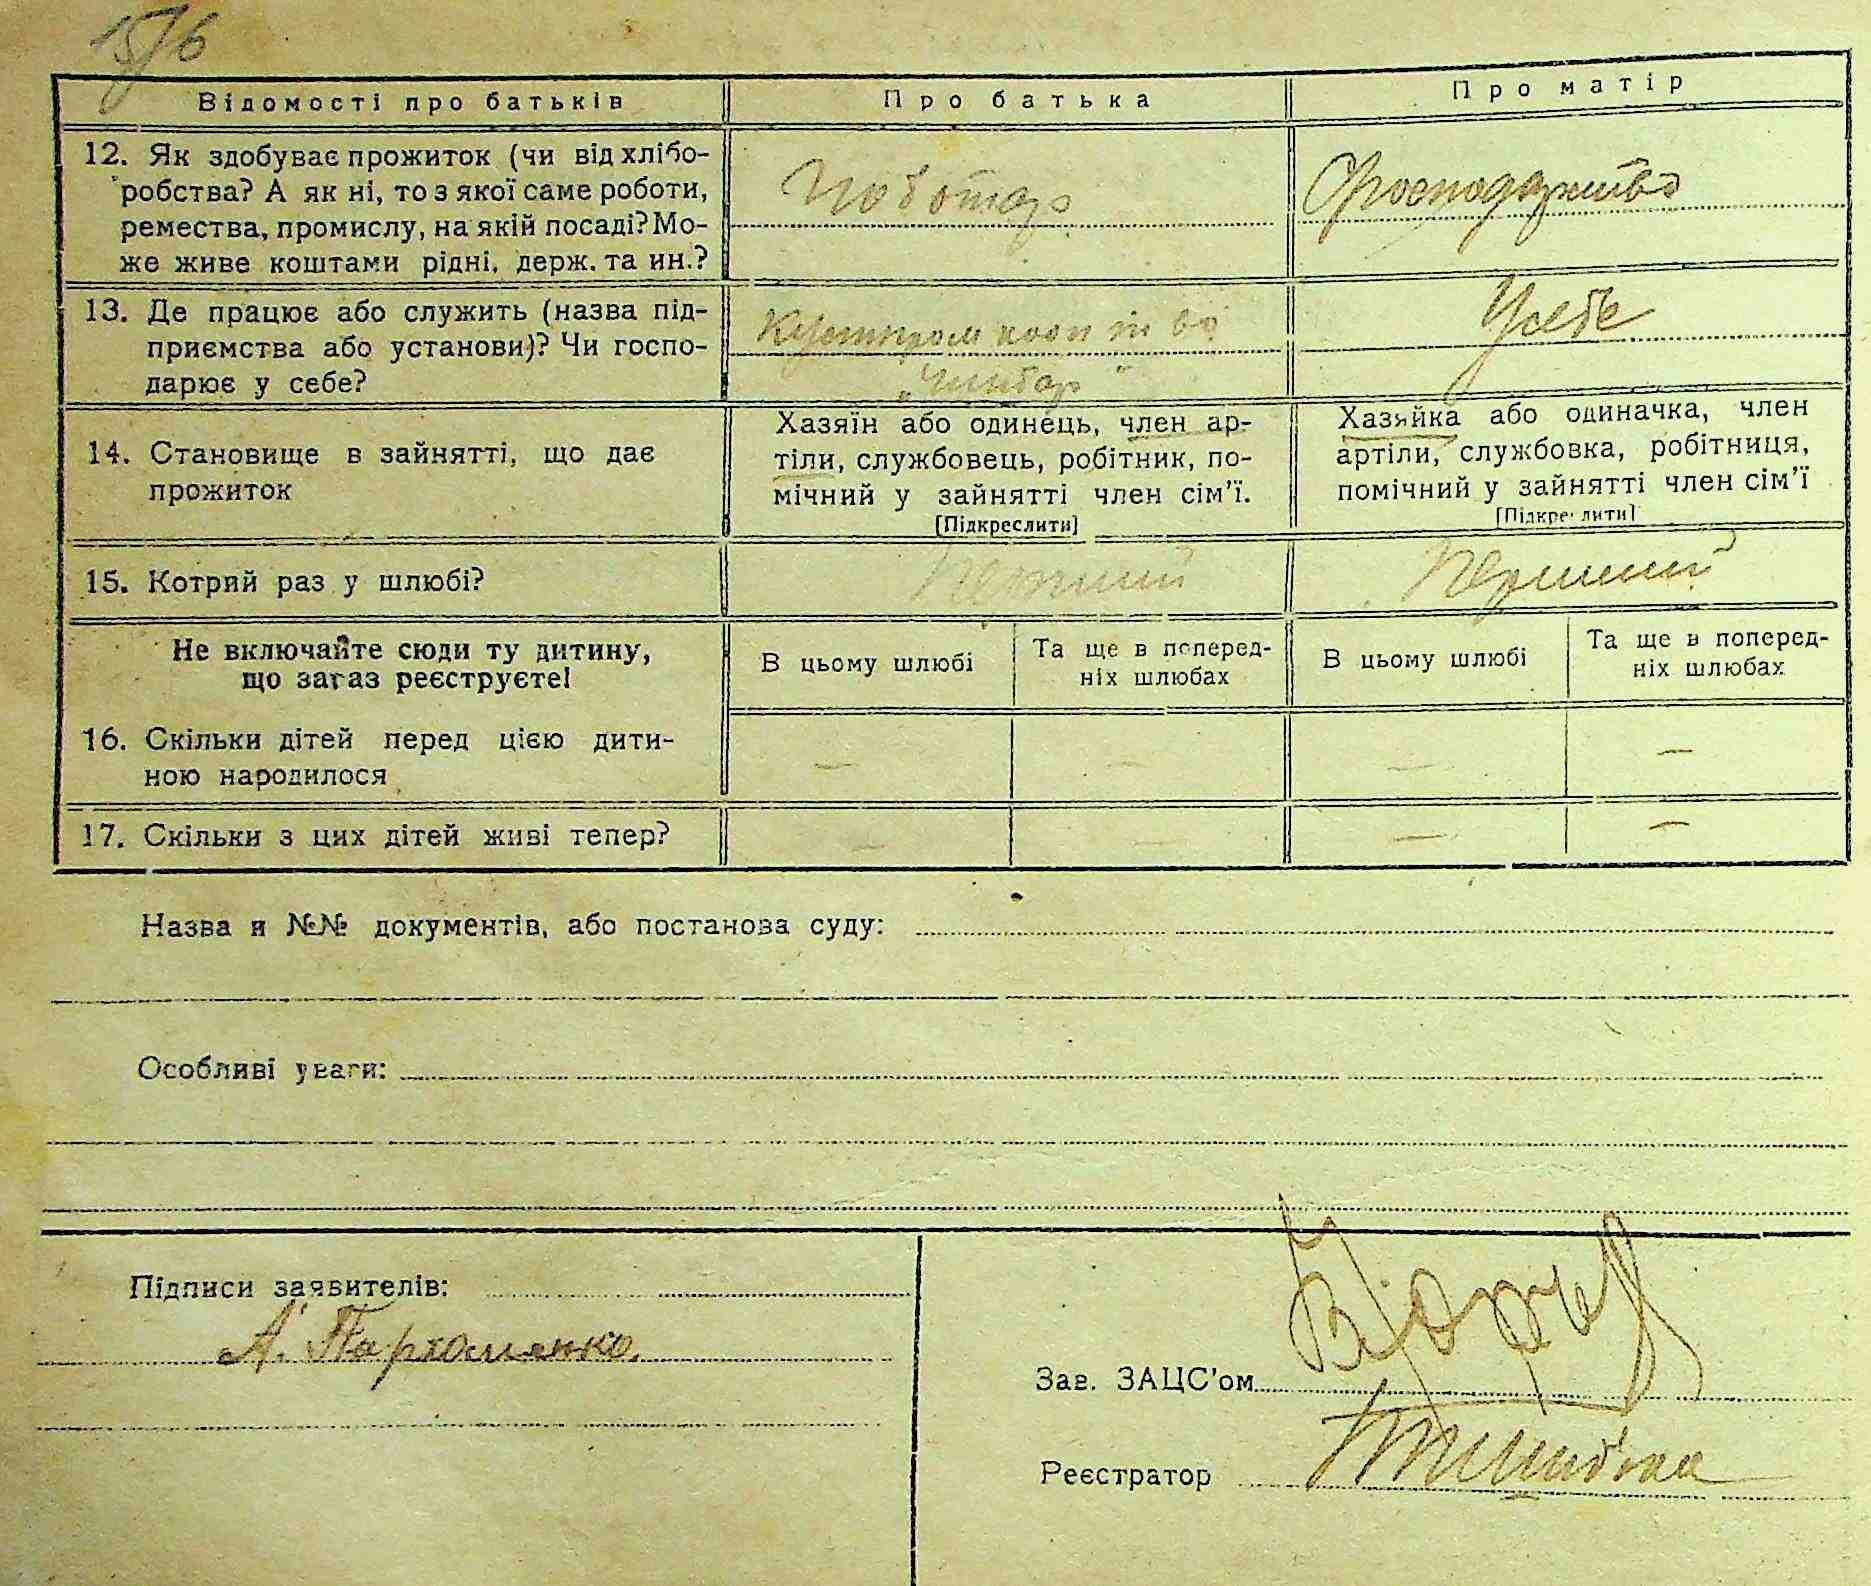 15/6
Відомості про батьків
Про батька
Про матір
12. Як здобуває прожиток (чи від хлібо-
робства? А як ні, то з якої саме роботи,
ремества, промислу, на якій посаді? Мо-
же живе коштами рідні, держ. та ин.?
Чоботар
Господарство
13. Де працює або служить (назва під-
приємства або установи)? Чи госпо-
дарює у себе?
Кустпром кооп т во
„Чинбар"
У себе
14. Становище в зайнятті, що дає
прожиток
Хазяїн або одинець, член ар-
тіли, службовець, робітник, по-
мічний у зайнятті член сім'ї.
[Підкреслити]
Хазяйка або одиначка, член
артіли, службовка, робітниця,
помічний у зайнятті член сім'ї
[Підкреслити]
15. Котрий раз у шлюбі?
Перший
Перший
Не включайте сюди ту дитину,
що зараз реєструєте!
В цьому шлюбі
Та ще в поперед-
ніх шлюбах
В цьому шлюбі
Та ще в поперед-
ніх шлюбах
16. Скільки дітей перед цією дити-
ною народилося
— — — —
17. Скільки з цих дітей живі тепер?
— — — —
Назва й №№ документів, або постанова суду:
Особливі уваги:
Підписи заявителів:
А. Пархоменко
Зав. ЗАЦС'ом
Реєстратор